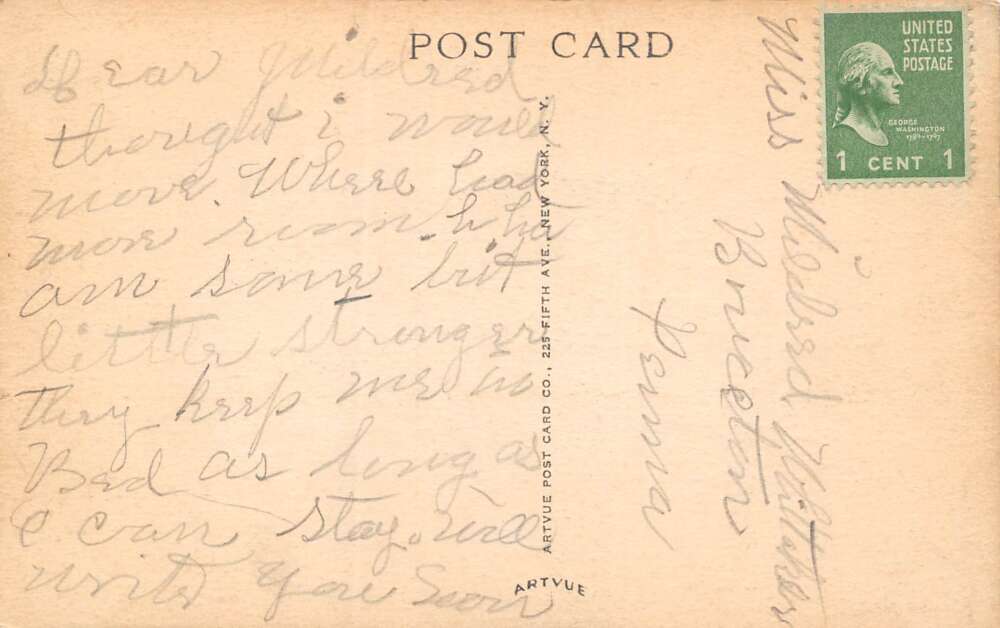 POST CARD
Dear Mildred
thought i would
move. Where had
more room.
am some but
little stronger
they keep me in
Bed as long as
can stay. will
write you Soon
ARTVUE POST CARD CO., 225 FIFTH AVE., NEW YORK, N. Y.
ARTVUE
Miss Mildred
Penna
UNITED
STATES
POSTAGE
GEORGE
WASHINGTON
1789-1797
1 CENT 1